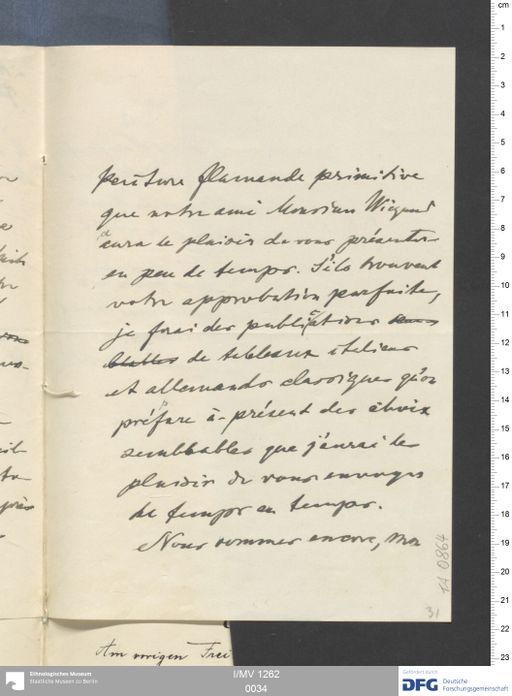 peinture flamande primitive
que notre ami Monsieur Wiegand
aura le plaisir de vous présenter
en peu de temps. S'ils trouvent
votre approbation parfaite,
je ferai des publications sem-
blables de tableaux italiens
et allemands classiques qu'on
préfère à-présent des choix
semblables que j'aurai le
plaisir de vous envoyer
de temps en temps.
Nous sommes encore, mon
1A 0864
31
Am vorigen Frei
I/MV 1262
0034
Ethnologisches Museum
Staatliche Museen zu Berlin
Gefördert durch
DFG Deutsche
Forschungsgemeinschaft
cm
1
2
3
4
5
6
7
8
9
10
11
12
13
14
15
16
17
18
19
20
21
22
23